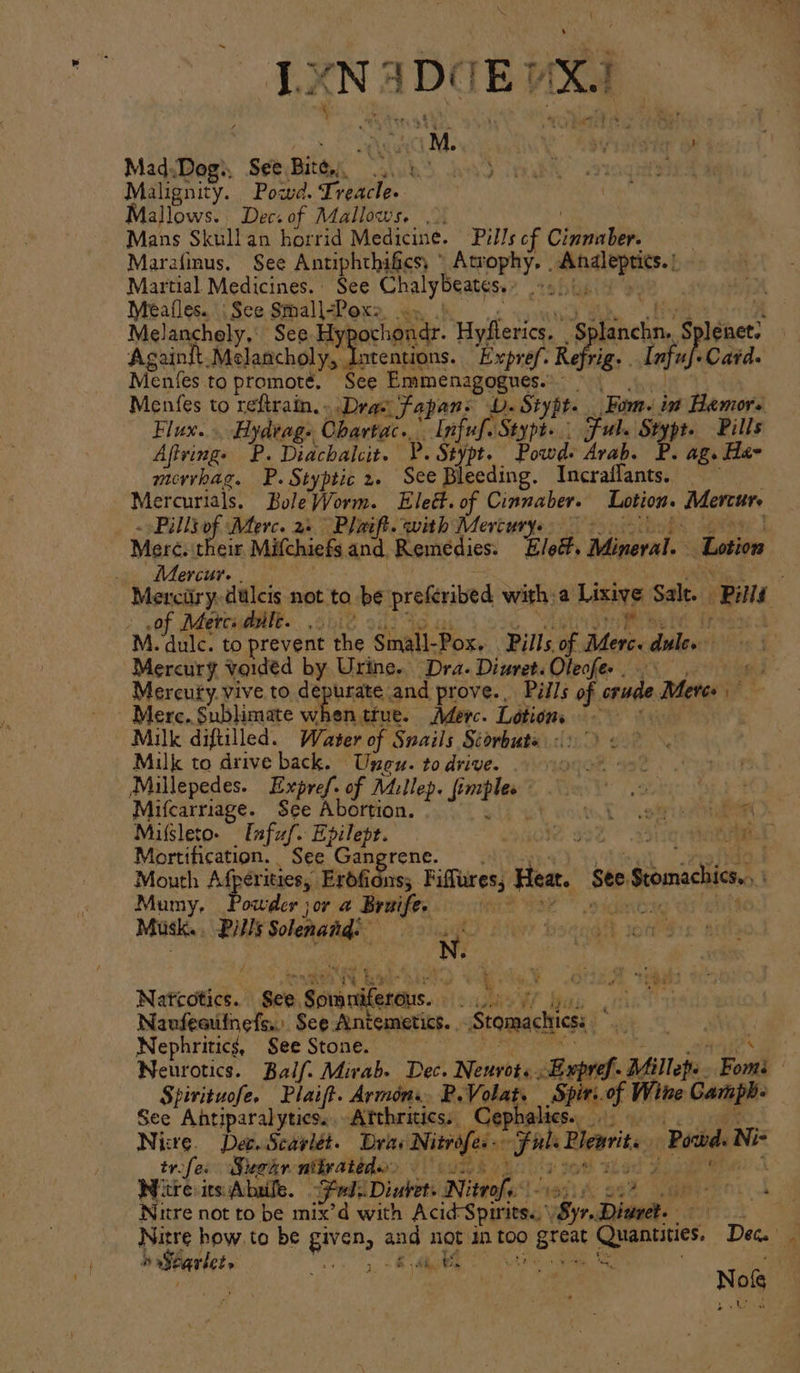 M.
Mad Dog. See Bite.
Malignity. Powd. Treacle.
Mallows. Dec. of Mallows.
Mans Skull an horrid Medicine. Pills of Cinnaber.
Maraſinus. See Antiphthiſics, Atrophy. Analeptics.
Martial Medicines. See Chalybeates.
Meaſles. See Small-Pox.
Melancholy. See Hypochondr. Hyſterics. Splanchn. Splenet.
Againſt Melancholy, Intentions. Expreſ. Refrig. Infuſ. Card.
Menſes to promote. See Emmenagogues.
Menſes to reſtrain. Dra. Japan. D. Stypt. Fom. in Hæmor.
Flux. Hydrag. Chartac. Infuſ. Stypt. Jul. Stypt. Pills
Aſtring. P. Diachalcit. P. Stypt. Powd. Arab. P. ag. Hæ-
morrhag. P. Styptic 2. See Bleeding. Incraſſants.
Mercurials. Bole Worm. Elect. of Cinnaber. Lotion. Mercur.
Pills of Merc. 2. Plaiſt. with Mercury.
Merc. their Miſchiefs and Remedies. Elect. Mineral. Lotion
Mercur.
Mercury dulcis not to be preſcribed with a Lixive Salt. Pills
of Merc. dulc.
M. dulc. to prevent the Small-Pox. Pills of Merc. dulc.
Mercury voided by Urine. Dra. Diuret. Oleoſe.
Mercury vive to depurate and prove. Pills of crude Merc.
Merc. Sublimate when true. Merc. Lotion.
Milk diſtilled. Water of Snails Scorbut.
Milk to drive back. Ungu. to drive.
Millepedes. Expreſ. of Millep. ſimple.
Miſcarriage. See Abortion.
Miſsleto. Infuſ. Epilept.
Mortification. See Gangrene.
Mouth Aſperities, Eroſions, Fiſſures, Heat. See Stomachics.
Mumy. Powder for a Bruiſe.
Musk. Pills Solenand.
N.
Narcotics. See Somniferous.
Nauſeouſneſs. See Antemetics. Stomachics.
Nephritics, See Stone.
Neurotics. Balſ. Mirab. Dec. Neurot. Expreſ. Millep. Fom.
Spirituoſe. Plaiſt. Armon. P. Volat. Spir. of Wine Camph.
See Antiparalytics. Arthritics. Cephalics.
Nitre. Dec. Scarlet. Dra. Nitroſe. Jul. Pleurit. Powd. Ni-
troſe. Sugar nitrated.
Nitre its Abuſe. Jul. Diuret. Nitroſ.
Nitre not to be mix'd with Acid Spirits. Syr. Diuret.
Nitre how to be given, and not in too great Quantities. Dec.
Scarlet.
Noſe